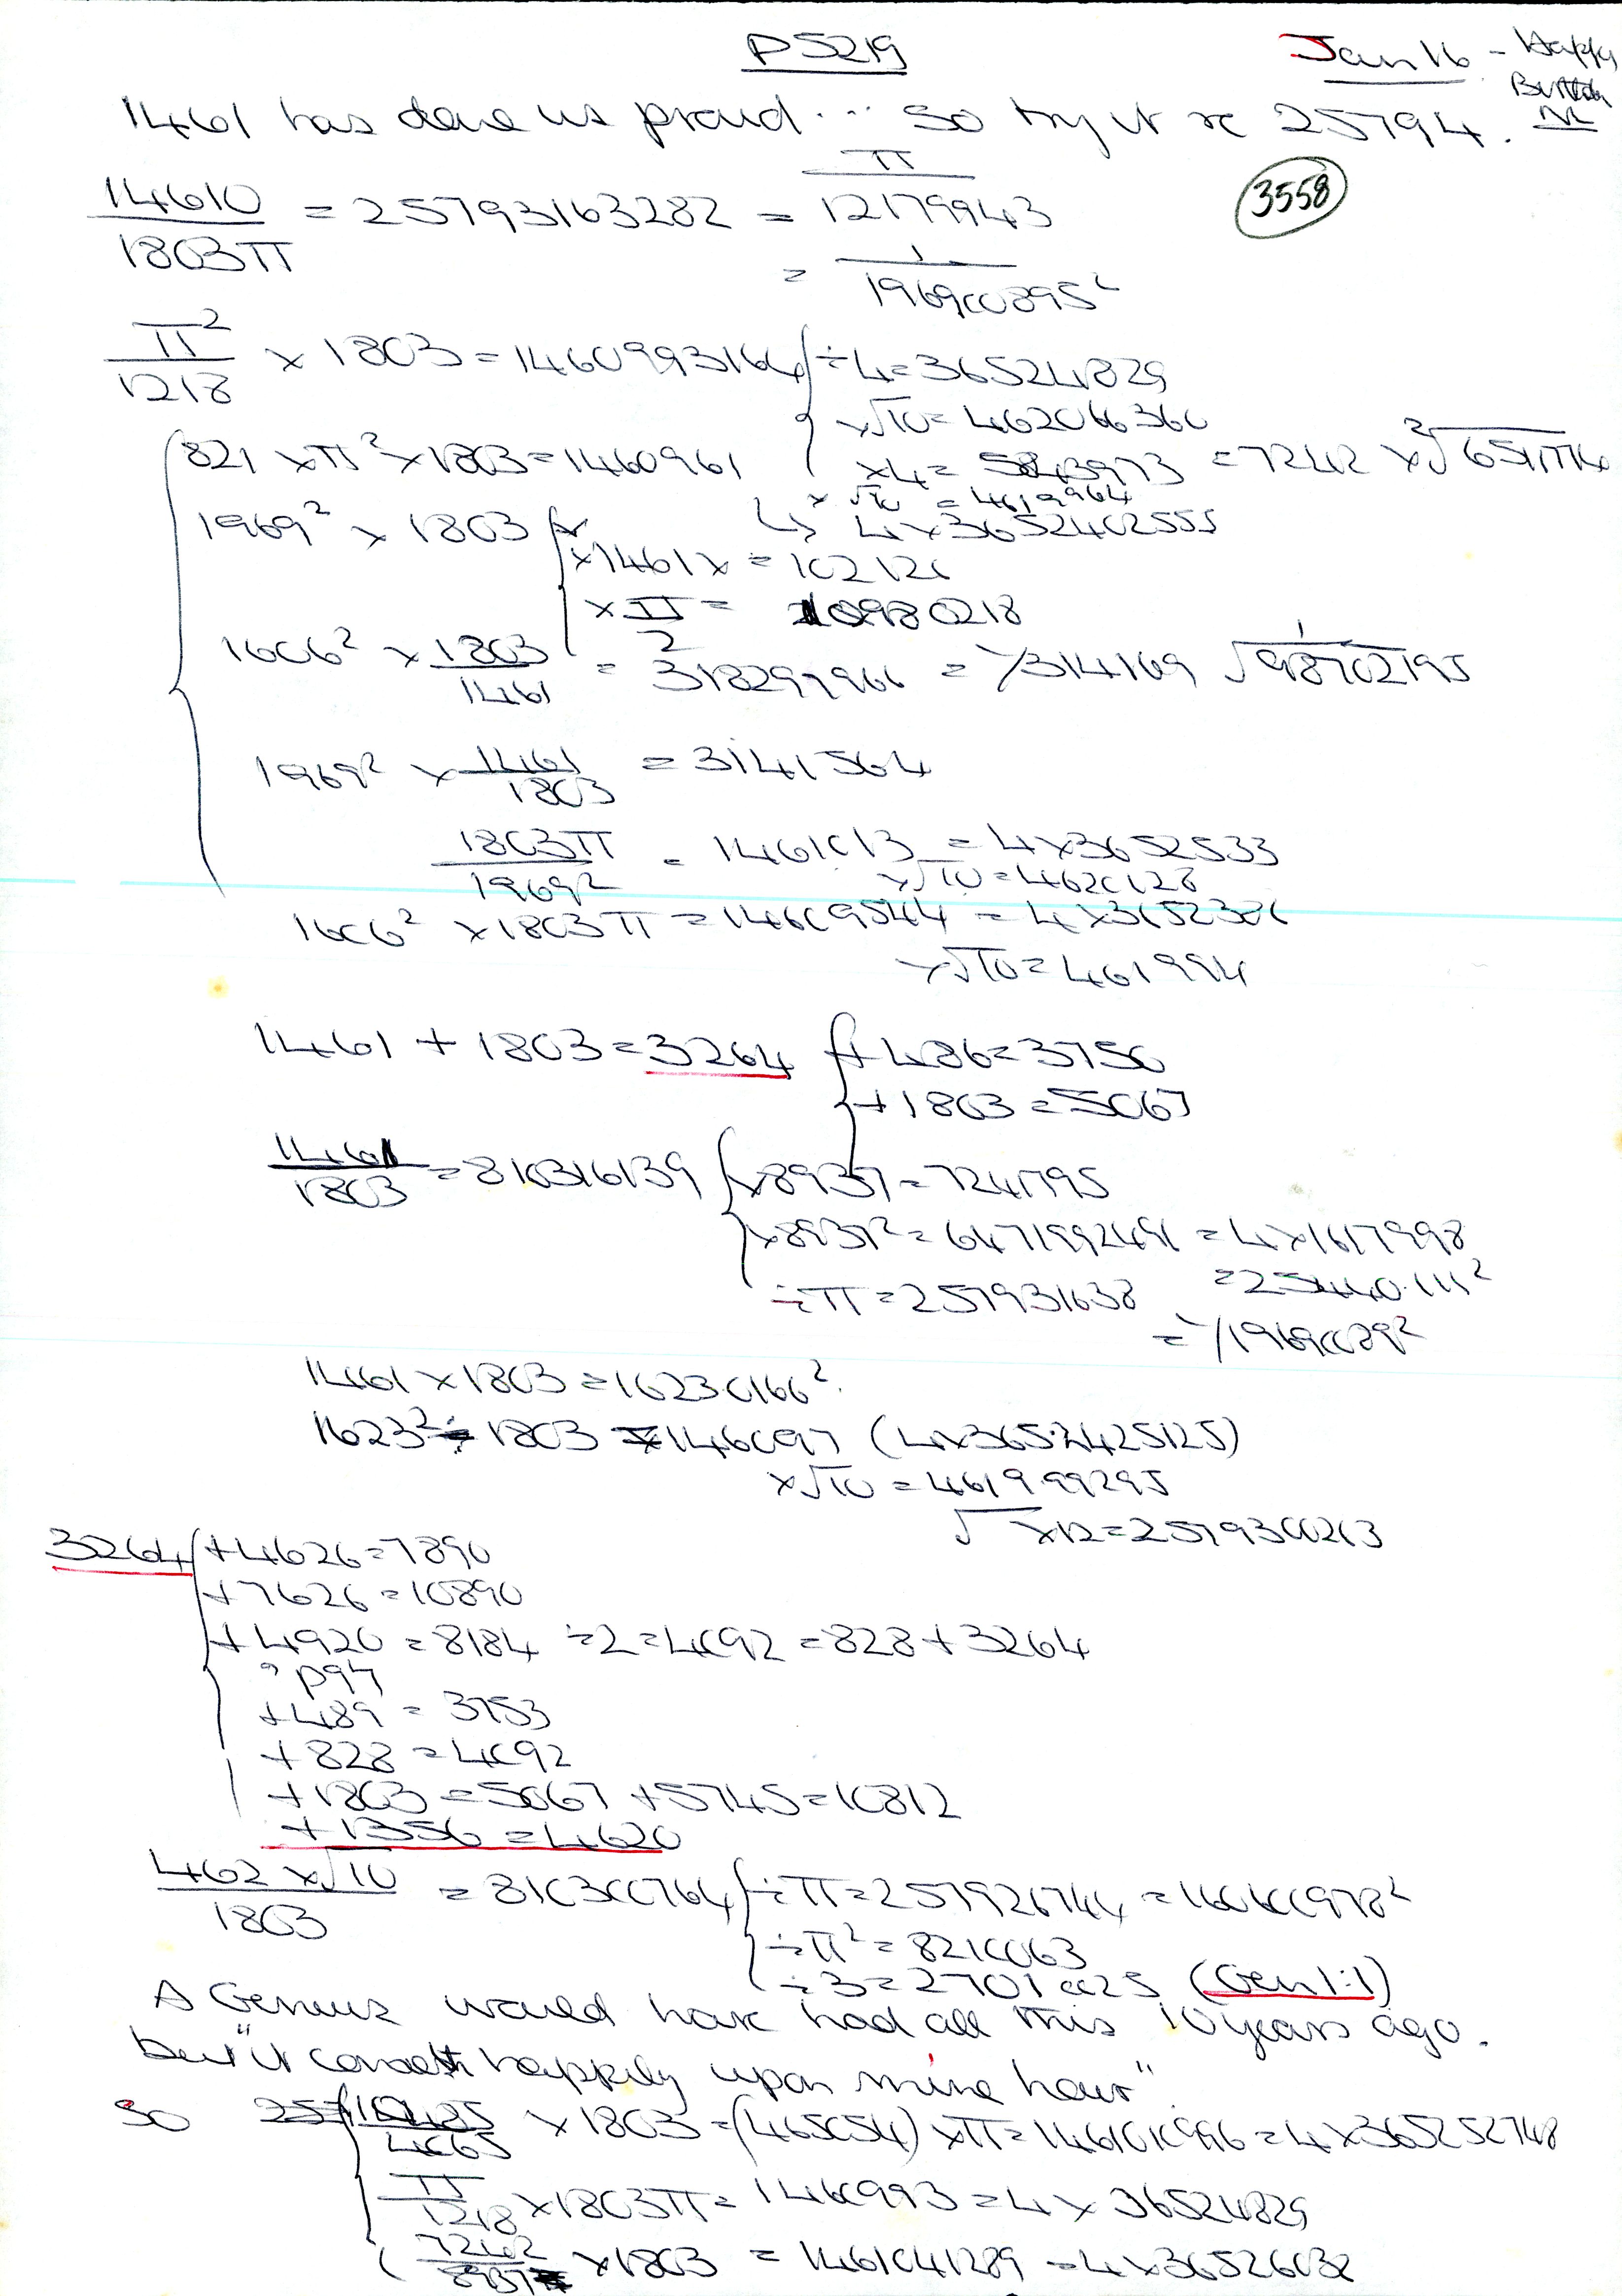 P5219
Jan 16 - Happy
1461 has done us proud... So try it re 25794.
3558
14610 / 1803π = 25793163282 = π / 12179943
= 1 / 196900895²
π² / 1218 × 1803 = 1460993164 ÷4 = 36524829
×√10 = 462006360
821 × π² × 1803 = 1460961
×4 = 5843973 = 7242 ×
×√10 = 4619964
1969² × 1803
↳ 4×3652402555
×1461× = 102126
×π/2 = 10980218
1606² × 1803/1461 = 318299966 = 1/314169 √1/98702195
1969² × 1461/1803 = 3141564
1803π / 1969² = 1461013 = 4×3652533
×√10 = 4620128
1606² × 1803π = 14609544 = 4×3652386
×√10 = 461994
1461 + 1803 = 3264 + 486 = 3750
+ 1803 = 5067
1461 / 1803 = 810316139 ×8937 = 7241795
×8937² = 6471992491 = 4×1617998
÷π = 257931638 = 25440.111²
= 1/19690089²
1461 × 1803 = 1623.0166²
1623² ÷ 1803 = 146097 (4×365.2425125)
×√10 = 4619.99295
√ ×12 = 2579300213
3264 + 4626 = 7890
+ 7626 = 10890
+ 4920 = 8184 ÷2 = 4092 = 828 + 3264
° p97
+ 489 = 3753
+ 828 = 4092
+ 1803 = 5067 + 5745 = 10812
+ 1356 = 4620
462 × √10 / 1803 = 810300764 ÷π = 257926744 = 160600978²
÷π² = 8210063
÷3 = 27010025 (Gen 1:1)
A Genius would have had all this 10 years ago.
but "it cometh happily upon mine hour"
So 10485/4065 × 1803 = (465054) ×π = 1461010996 = 4×365252748
π/1218 × 1803π = 1460993 = 4 × 36524829
7242/8937 × 1803 = 1461041289 = 4×36526032